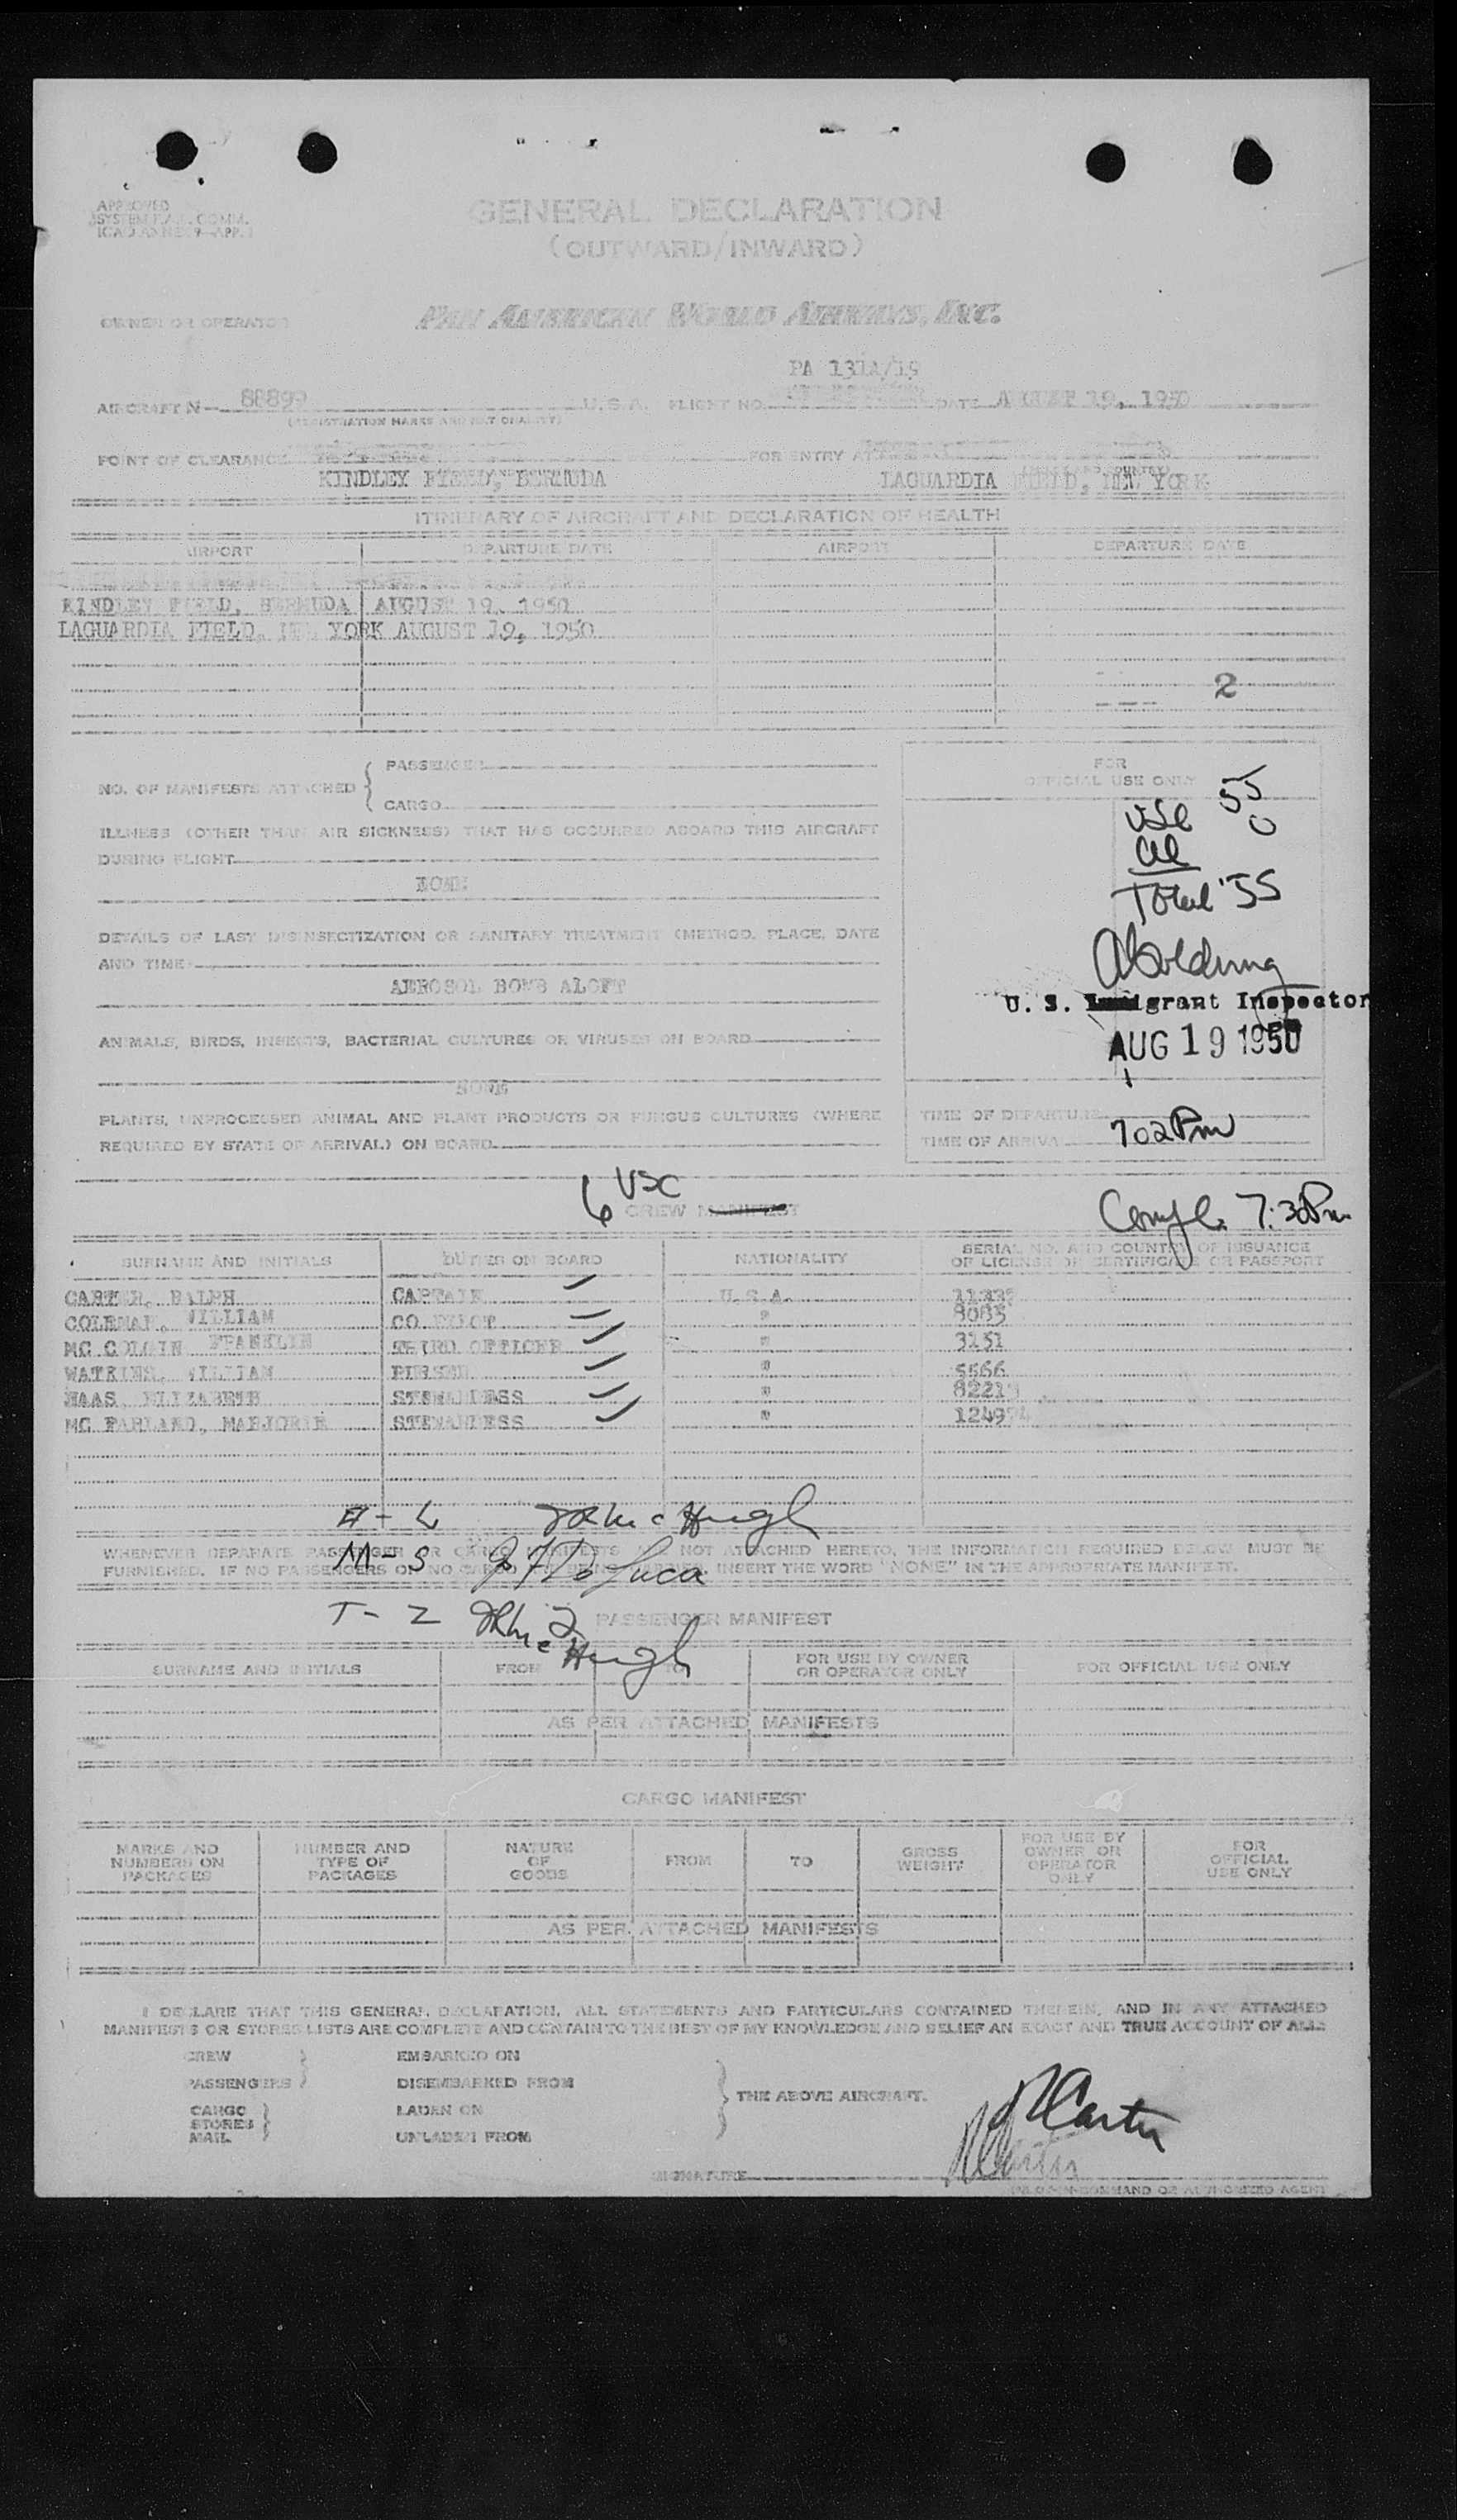 APPROVED
GENERAL DECLARATION
(OUTWARD/INWARD)
OWNER OR OPERATOR PAN AMERICAN WORLD AIRWAYS, INC.
PA 131A/19
AIRCRAFT N- 88899 U.S.A. FLIGHT NO. DATE AUGUST 19, 1950
(REGISTRATION MARKS AND NATIONALITY)
POINT OF CLEARANCE FOR ENTRY AT
KINDLEY FIELD, BERMUDA LAGUARDIA FIELD, NEW YORK
ITINERARY OF AIRCRAFT AND DECLARATION OF HEALTH
AIRPORT DEPARTURE DATE AIRPORT DEPARTURE DATE
KINDLEY FIELD, BERMUDA AUGUST 19, 1950
LAGUARDIA FIELD, NEW YORK AUGUST 19, 1950
2
NO. OF MANIFESTS ATTACHED { PASSENGER
CARGO
ILLNESS (OTHER THAN AIR SICKNESS) THAT HAS OCCURRED ABOARD THIS AIRCRAFT
DURING FLIGHT
NONE
DETAILS OF LAST DISINSECTIZATION OR SANITARY TREATMENT (METHOD, PLACE, DATE
AND TIME)
AEROSOL BOMB ALOFT
ANIMALS, BIRDS, INSECTS, BACTERIAL CULTURES OR VIRUSES ON BOARD
NONE
PLANTS, UNPROCESSED ANIMAL AND PLANT PRODUCTS OR FUNGUS CULTURES (WHERE
REQUIRED BY STATE OF ARRIVAL) ON BOARD
FOR
OFFICIAL USE ONLY
USC 55
al 0
Total 55
U. S. Immigrant Inspector
AUG 19 1950
TIME OF DEPARTURE
TIME OF ARRIVAL 702 Pm
6 USC
CREW MANIFEST
Compl. 7:30 Pm
SURNAME AND INITIALS DUTIES ON BOARD NATIONALITY SERIAL NO. AND COUNTRY OF ISSUANCE
OF LICENSE OR CERTIFICATE OR PASSPORT
CARTER, RALPH CAPTAIN U.S.A.
COLEMAN, WILLIAM CO PILOT " 8085
MC COLGIN FRANKLIN THIRD OFFICER " 3151
WATKINS, WILLIAM PURSER " 5566
HAAS, ELIZABETH STEWARDESS " 82213
MC FARLAND, MARJORIE STEWARDESS " 124974
A - L JR McHugh
WHENEVER SEPARATE PASSENGER OR CARGO MANIFESTS ARE NOT ATTACHED HERETO, THE INFORMATION REQUIRED BELOW MUST BE
M - S J F De Luca
FURNISHED. IF NO PASSENGERS OR NO CARGO ARE BEING CARRIED INSERT THE WORD "NONE" IN THE APPROPRIATE MANIFEST.
T - Z JR McHugh 2
PASSENGER MANIFEST
SURNAME AND INITIALS FROM TO FOR USE BY OWNER
OR OPERATOR ONLY FOR OFFICIAL USE ONLY
AS PER ATTACHED MANIFESTS
CARGO MANIFEST
MARKS AND
NUMBERS ON
PACKAGES NUMBER AND
TYPE OF
PACKAGES NATURE
OF
GOODS FROM TO GROSS
WEIGHT FOR USE BY
OWNER OR
OPERATOR
ONLY FOR
OFFICIAL
USE ONLY
AS PER ATTACHED MANIFESTS
I DECLARE THAT THIS GENERAL DECLARATION, ALL STATEMENTS AND PARTICULARS CONTAINED THEREIN, AND IN ANY ATTACHED
MANIFESTS OR STORES LISTS ARE COMPLETE AND CONTAIN TO THE BEST OF MY KNOWLEDGE AND BELIEF AN EXACT AND TRUE ACCOUNT OF ALL:
CREW EMBARKED ON
PASSENGERS DISEMBARKED FROM
THE ABOVE AIRCRAFT.
CARGO LADEN ON
STORES
MAIL UNLADEN FROM
R Carter
SIGNATURE R Carter
PILOT-IN-COMMAND OR AUTHORIZED AGENT